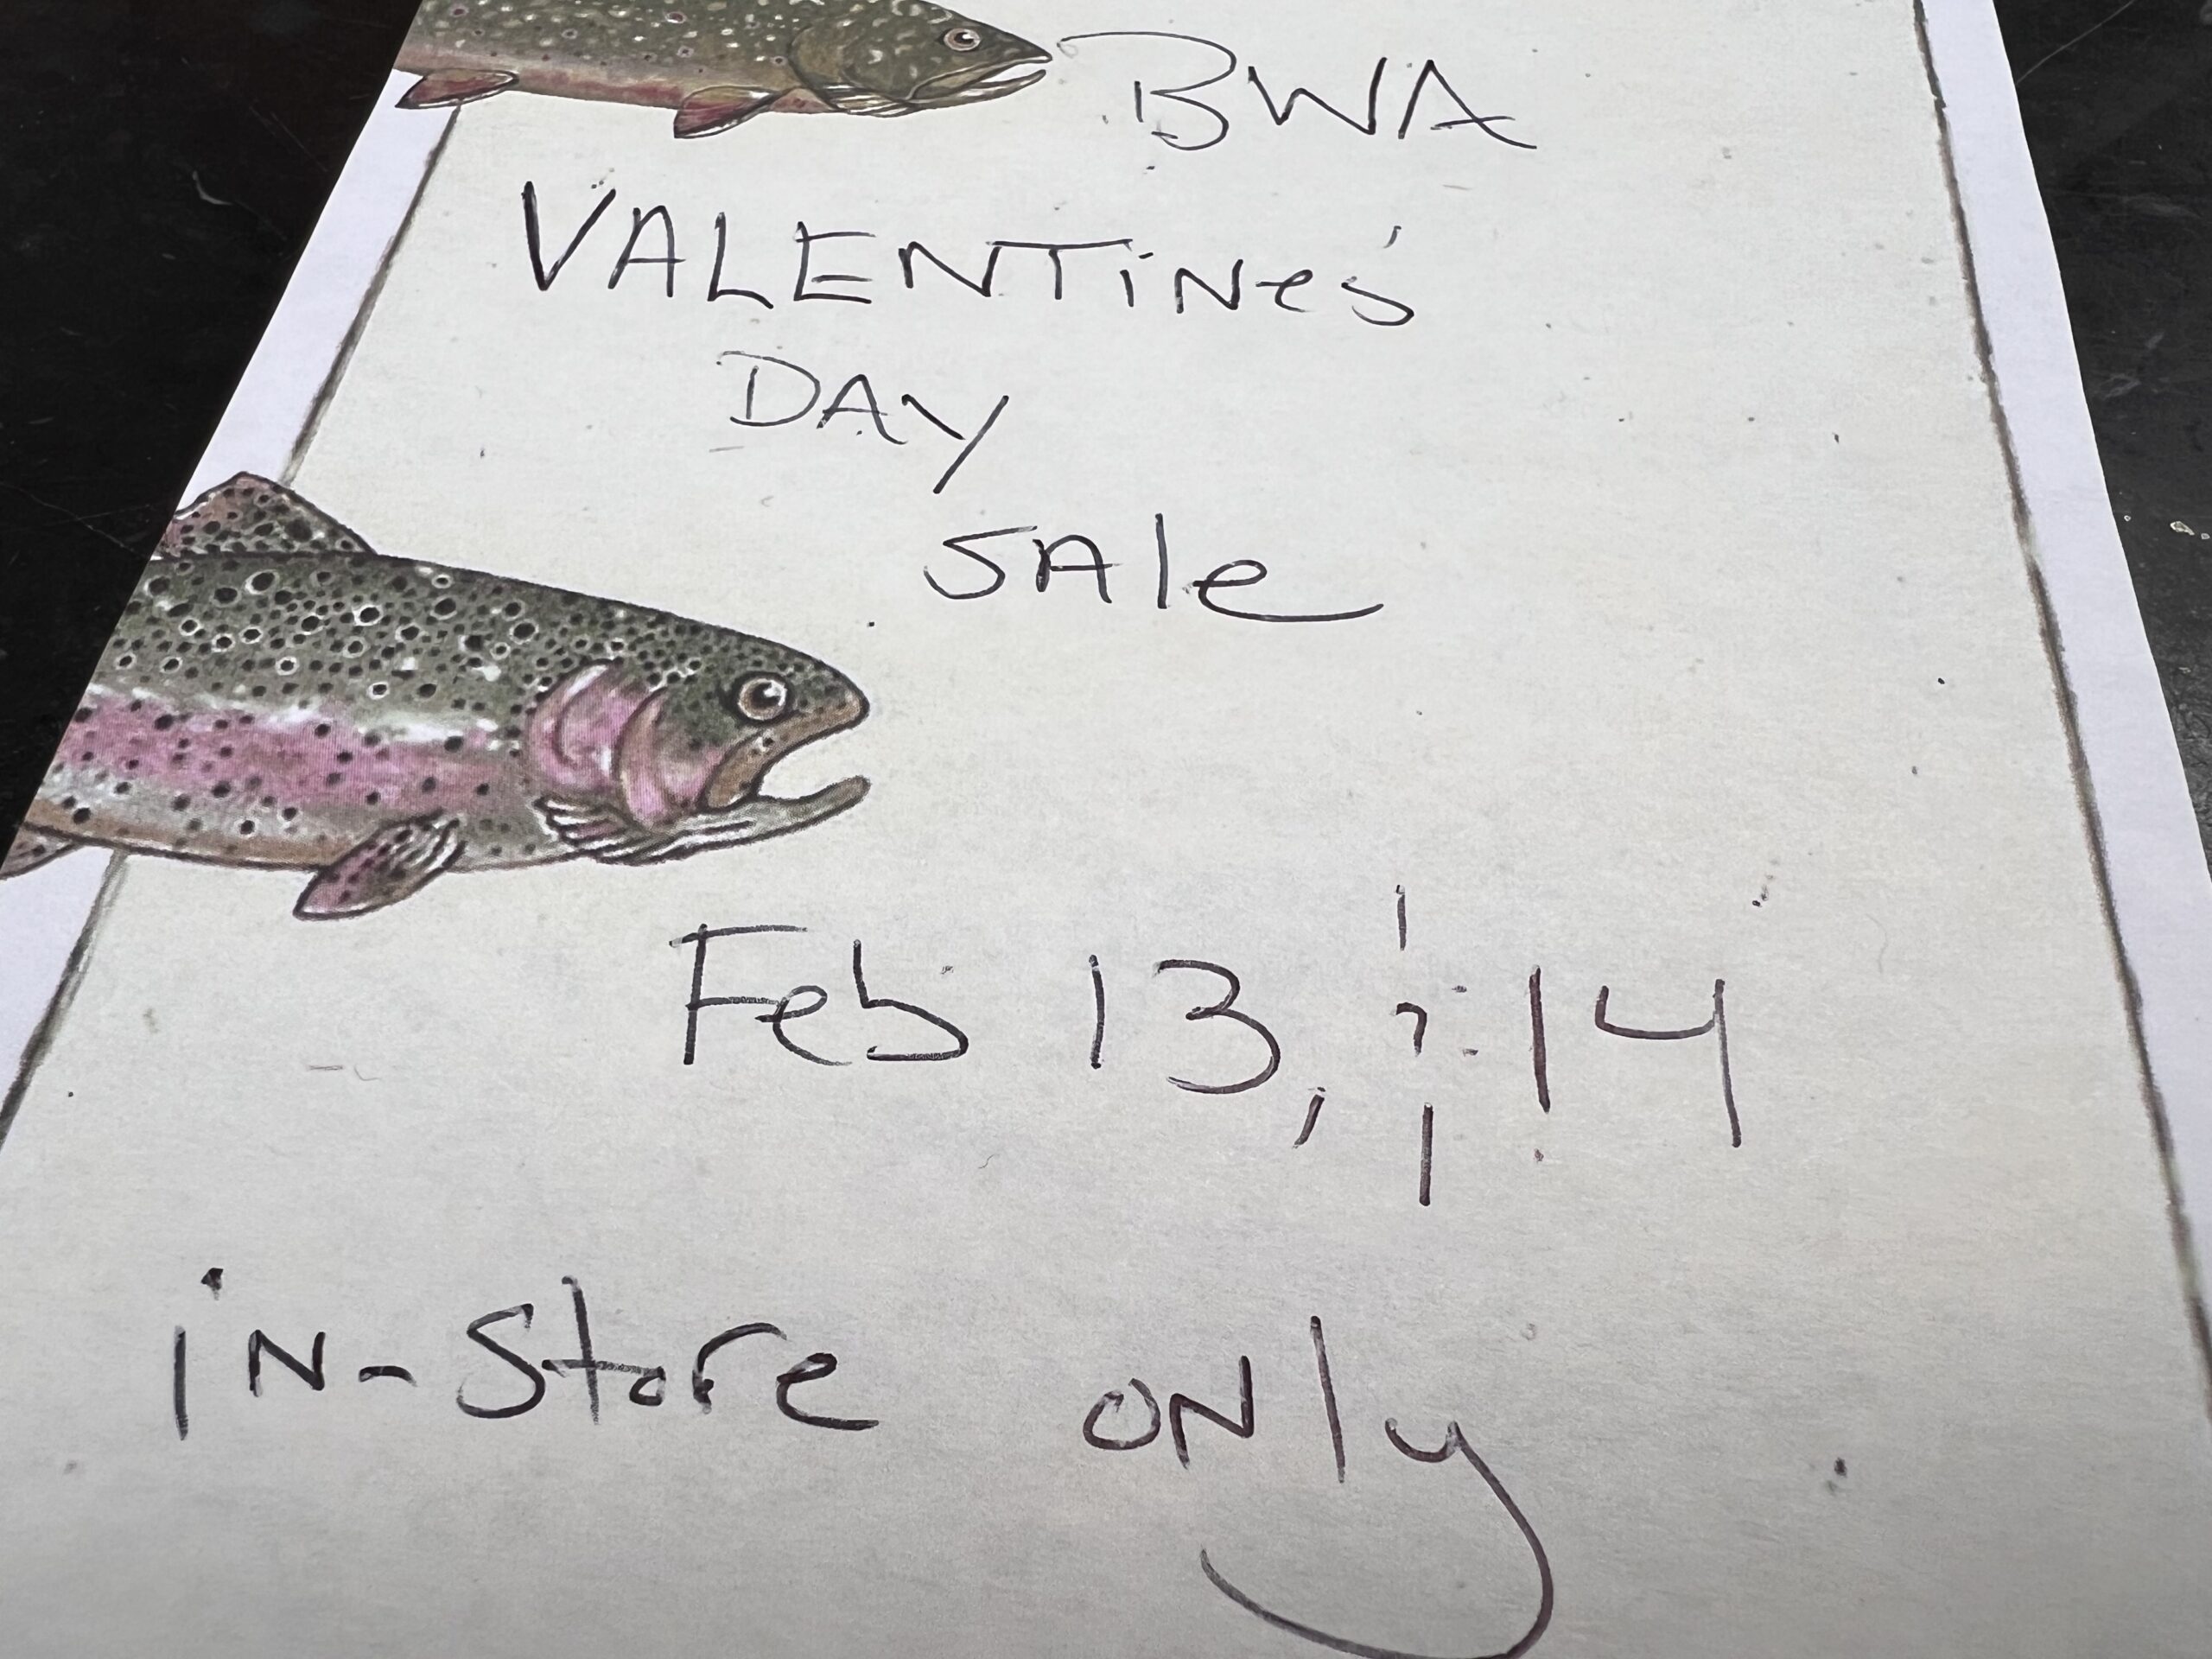 BWA
VALENTiNe's
DAY
SAle
Feb 13, 14
iN-Store ONly